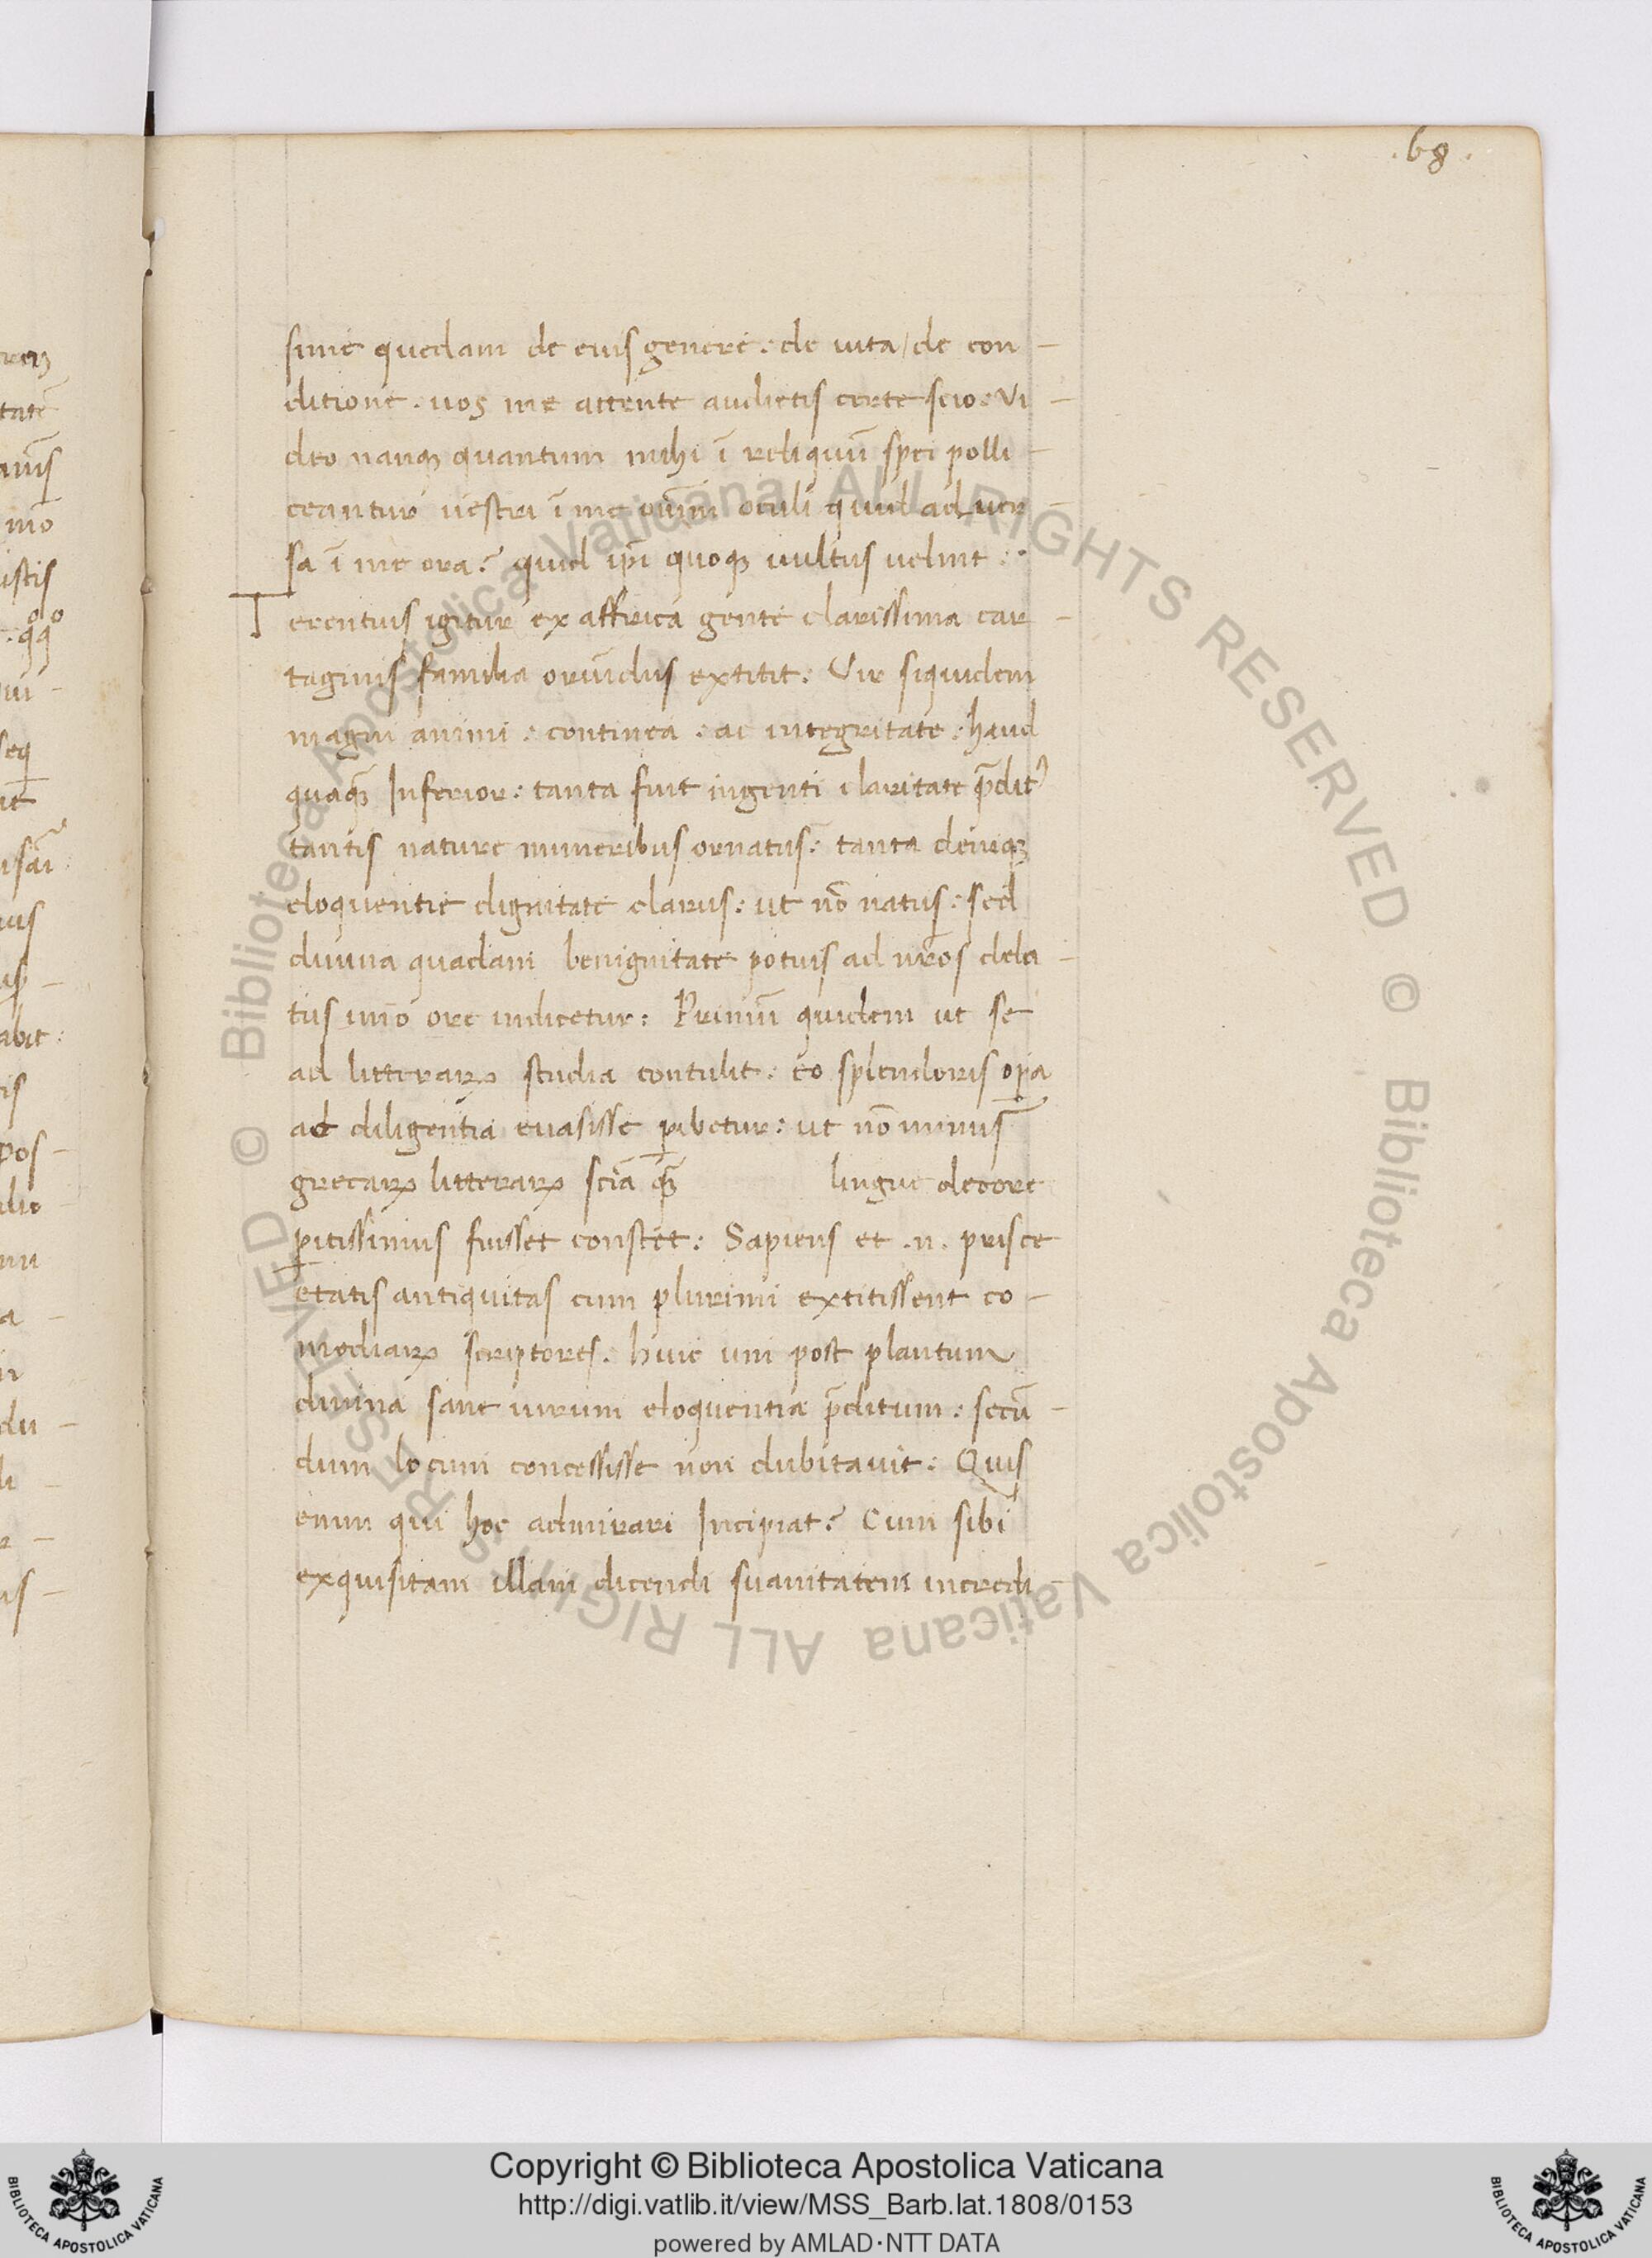 .68.
sinit quedam de eius genere : de uita / de con -
ditione . uos me attente audietis certe scio : Vi -
deo nanqȝ quantum mihi ī reliquū spei polli -
ceantur uestri ī me oculi quid aduer -
sa ī me ora ? quid ip̄i quoqȝ uultus uelint :
Terentius igitur ex affrica gente clarissima car -
taginis familia oriūdus extitit : Vir siquidem
magni animi : continea : ac integritate : haud
quaqȝ̄ Inferior : tanta fuit ingenti claritate p̄dit9
tantis nature muneribus ornatus : tanta deniqȝ
eloquentie dignitate clarus : ut nō natus : sed
diuina quadam benignitate potius ad nr̄os dela -
tus uno ore iudicetur : Primū quidem ut se
ad litteraꝝ studia contulit : eo splendoris opa
ac diligentia euasisse ꝑibetur : ut nō minus
grecaꝝ litteraꝝ scīa qȝ̄ lingue decore
ꝑitissimus fuisset constet : Sapiens et .n. prisce
etatis antiquitas cum plurimi extitissent co -
mediaꝝ scriptores : huic uni post plautum
diuina sane uirum eloquentia p̄ditum : secū -
dum locum concessisse non dubitauit : Quis
enim qui hoc admirari Incipiat ? Cum sibi
exquisitam illam dicendi suauitatem incredi -
© Biblioteca Apostolica Vaticana ALL RIGHTS RESERVED
© Biblioteca Apostolica Vaticana ALL RIGHTS RESERVED
Copyright © Biblioteca Apostolica Vaticana
http://digi.vatlib.it/view/MSS_Barb.lat.1808/0153
powered by AMLAD·NTT DATA
BIBLIOTECA APOSTOLICA VATICANA
BIBLIOTECA APOSTOLICA VATICANA